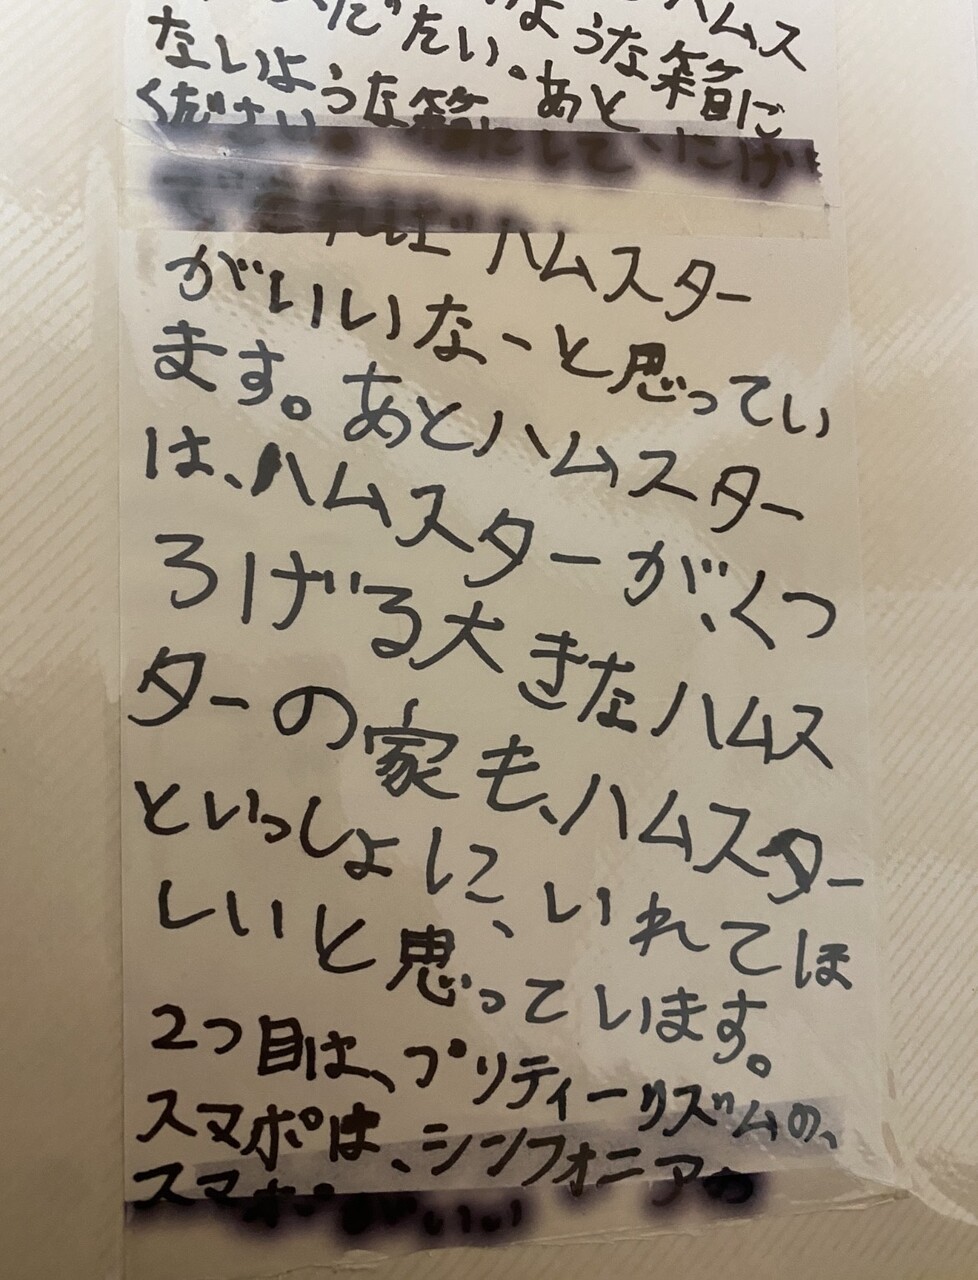 ハムス
だたい。ような箱に
ないような箱にして、にげ
ください。あと
できればハムスター
がいいなーと思ってい
ます。あとハムスター
は、ハムスターが、くつ
ろげる大きなハムス
ターの家も、ハムスター
といっしょに、いれてほ
しいと思っています。
2つ目は、プリティーリズムの、
スマポは、シンフォニアの
スマポがいい